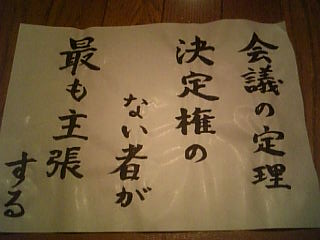 会議の定理
決定権の
ない者が
最も主張
する